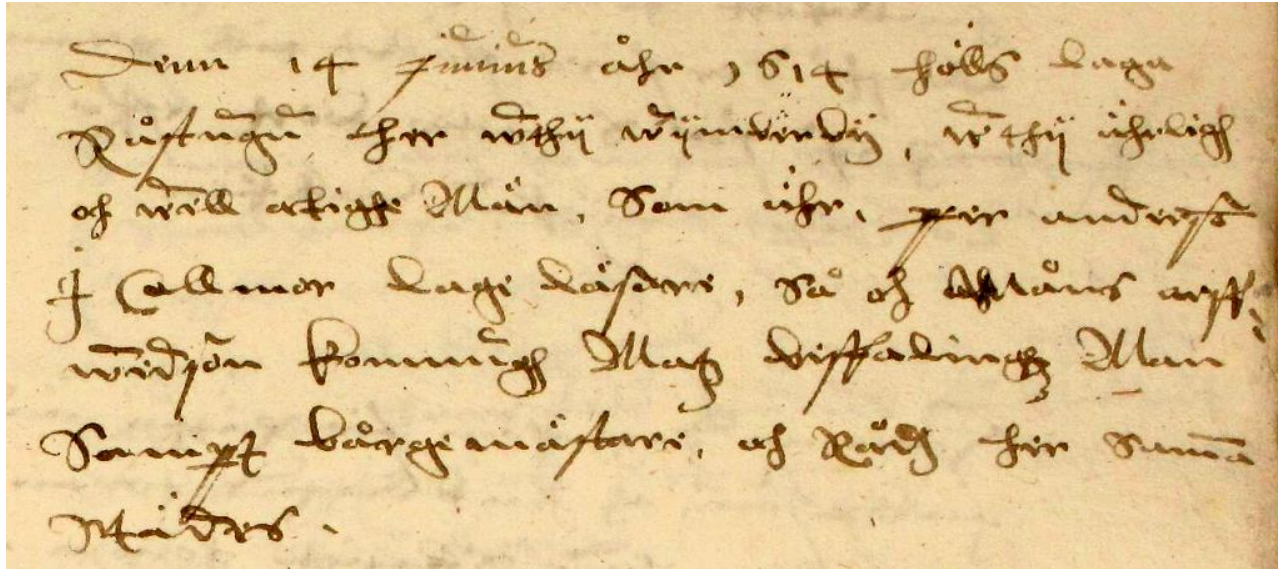 Denn 14 Junius åhr 1614 hölls laga
Råstugu her uthij Wimderdij, uthij ährligh
och well achtighe Män, Som ähr, Per anderss
I Callmar Lage läsare, så och Måns arff,
wedsön Konnungh Matz Biffalingz Man
Sampt Bårgemästare, och Rådh her Samma
städes.